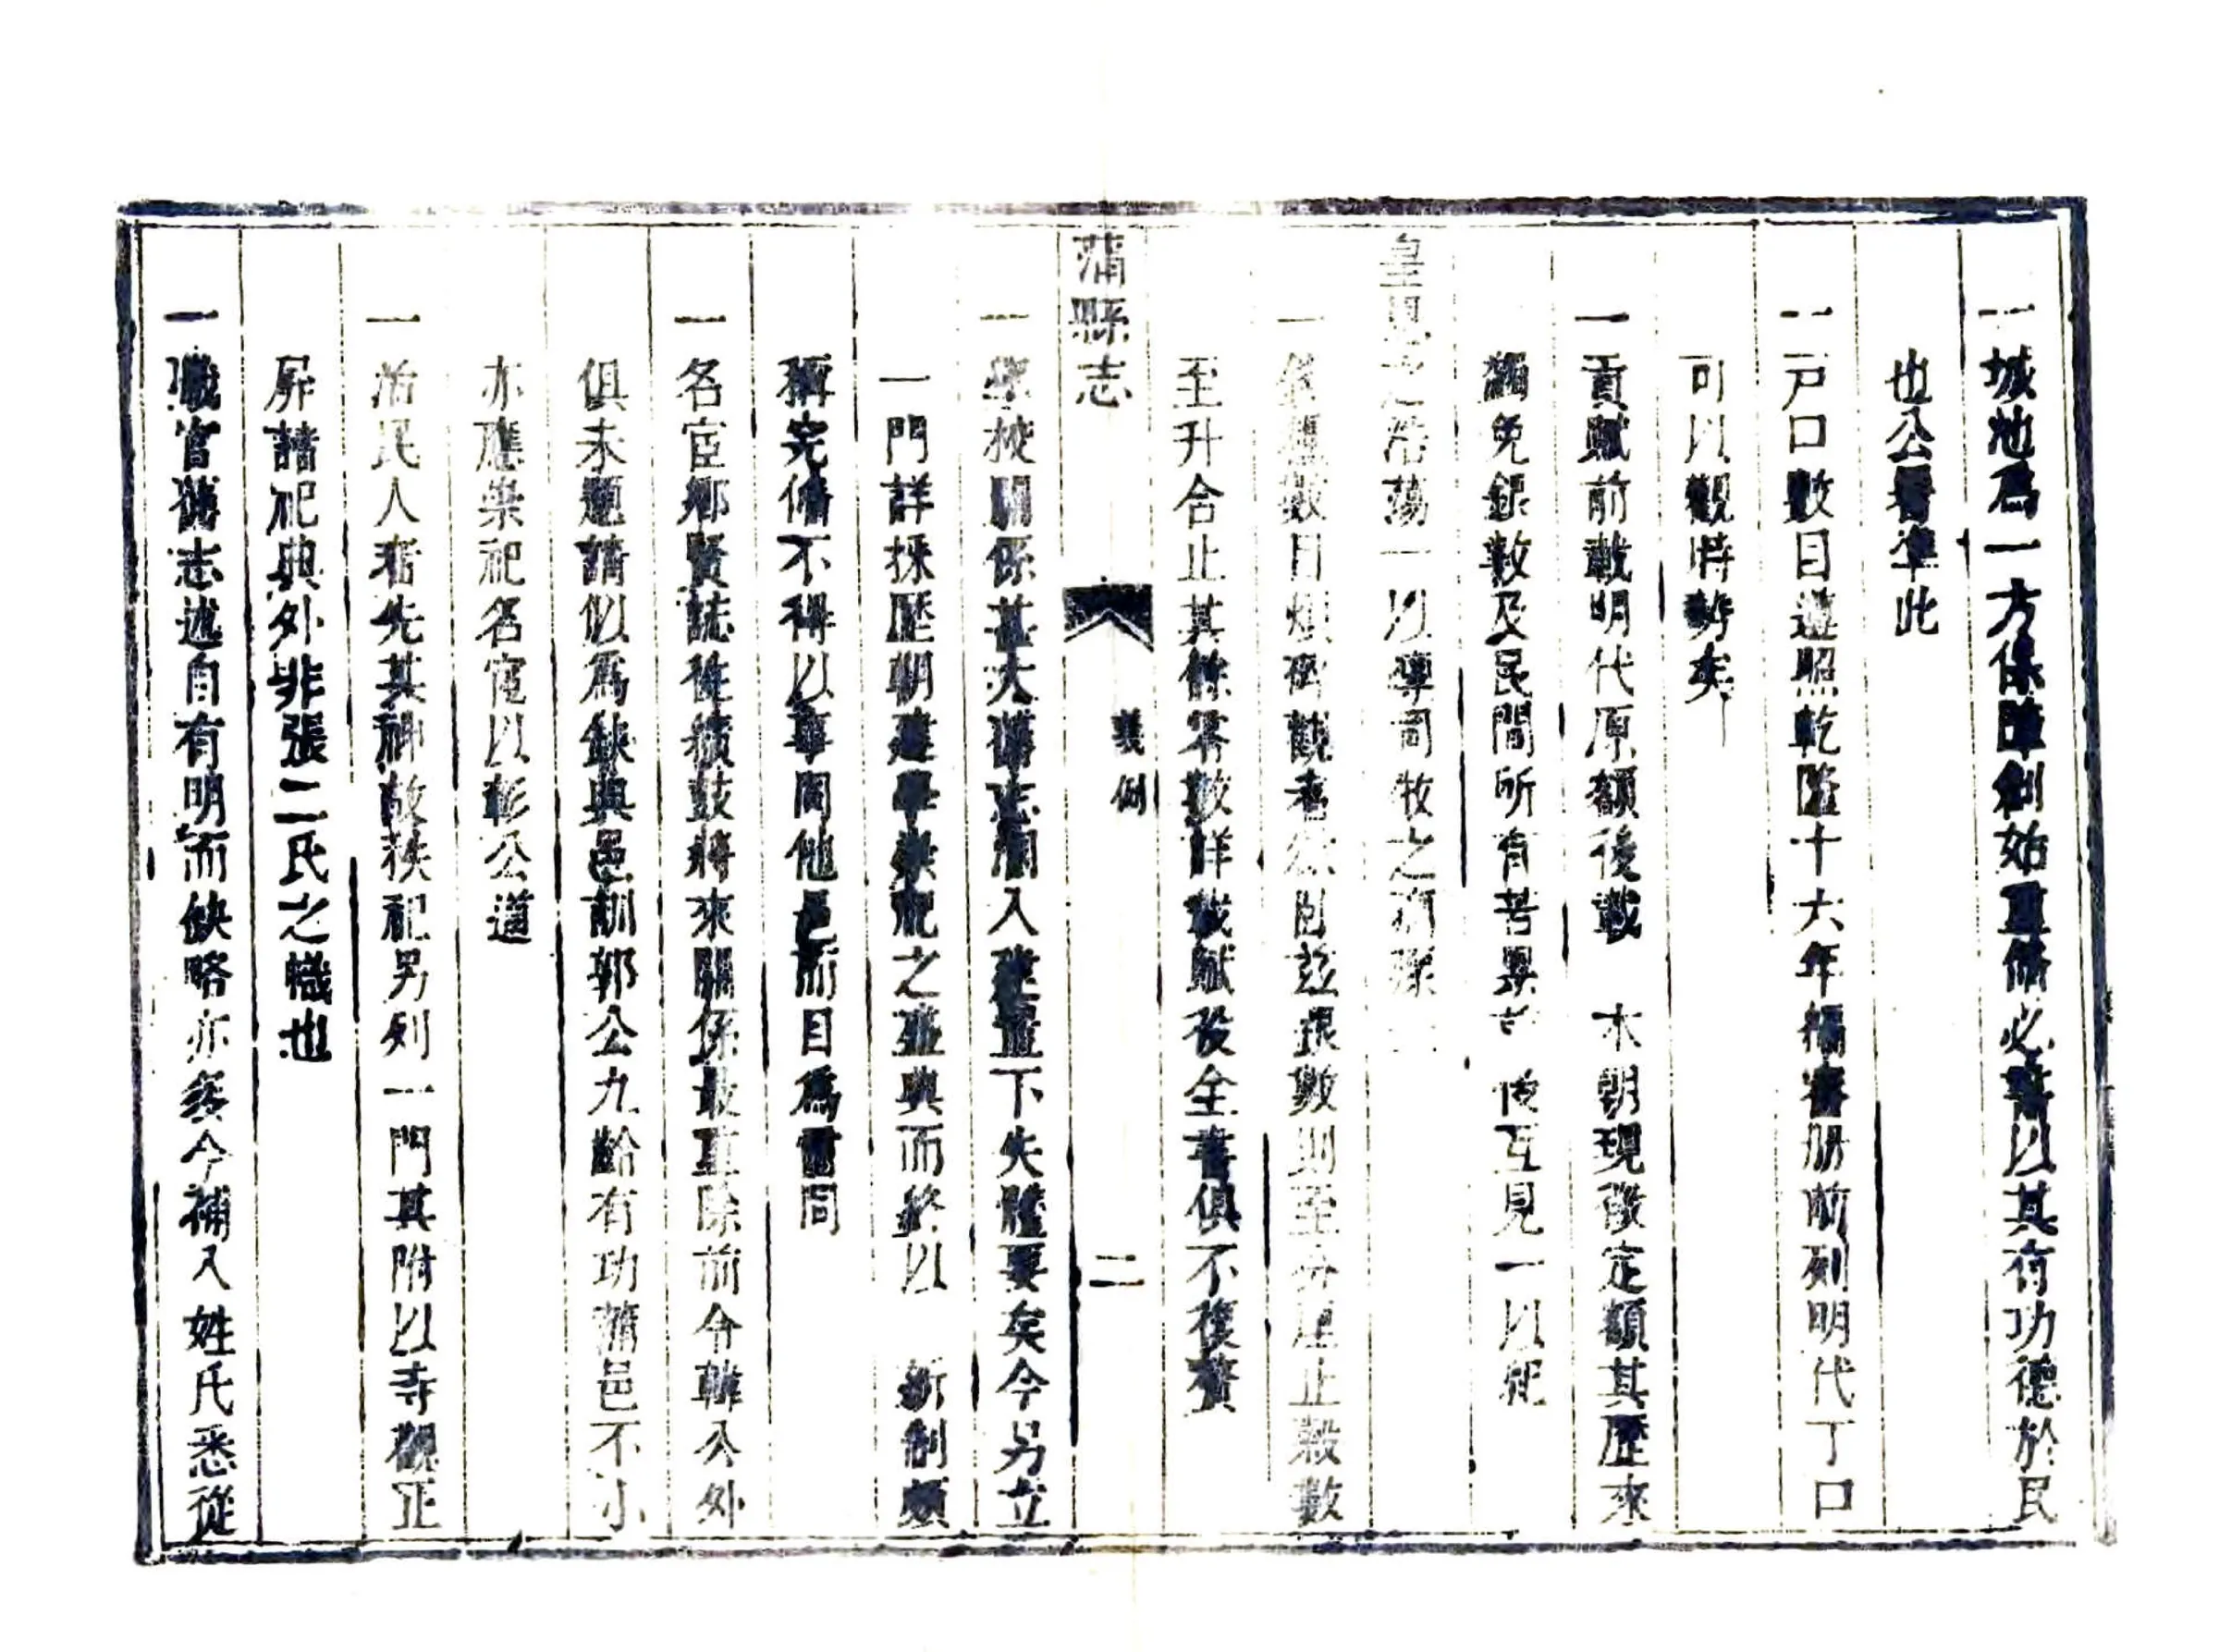 一城池爲一方保障創始重修必書以其有功德於民
也公署準此
一戸口數目遵照乾隆十六年編審册前列明代丁口
可以觀時勢矣
一貢賦前載明代原額後載 本朝現徵定額其歷來
蠲免銀數及民間所有苦累 互見一以
皇恩之浩蕩一以導司牧之
一 數目煩 觀者 自茲 銀數則至分厘止穀數
至升合止其餘零數詳載賦役全書俱不復贅
蒲縣志
凡例
二
一學校關係甚大舊志溷入建置下失體要矣今另立
一門詳採歷朝建學崇祀之並典而終以 新制頗
稱完備不得以事同他邑而目爲雷同
一名宦鄉賢誌徃績鼓將來關係最重除前令韓公外
俱未題請似爲缺典邑訓郭公九齡有功蒲邑不小
亦應崇祀名宦以彰公道
一治民人者先其神故秩祀另列一門其附以寺觀正
屏諸祀典外非張二氏之幟也
一職官舊志述自有明而缺略亦多今補入姓氏悉從